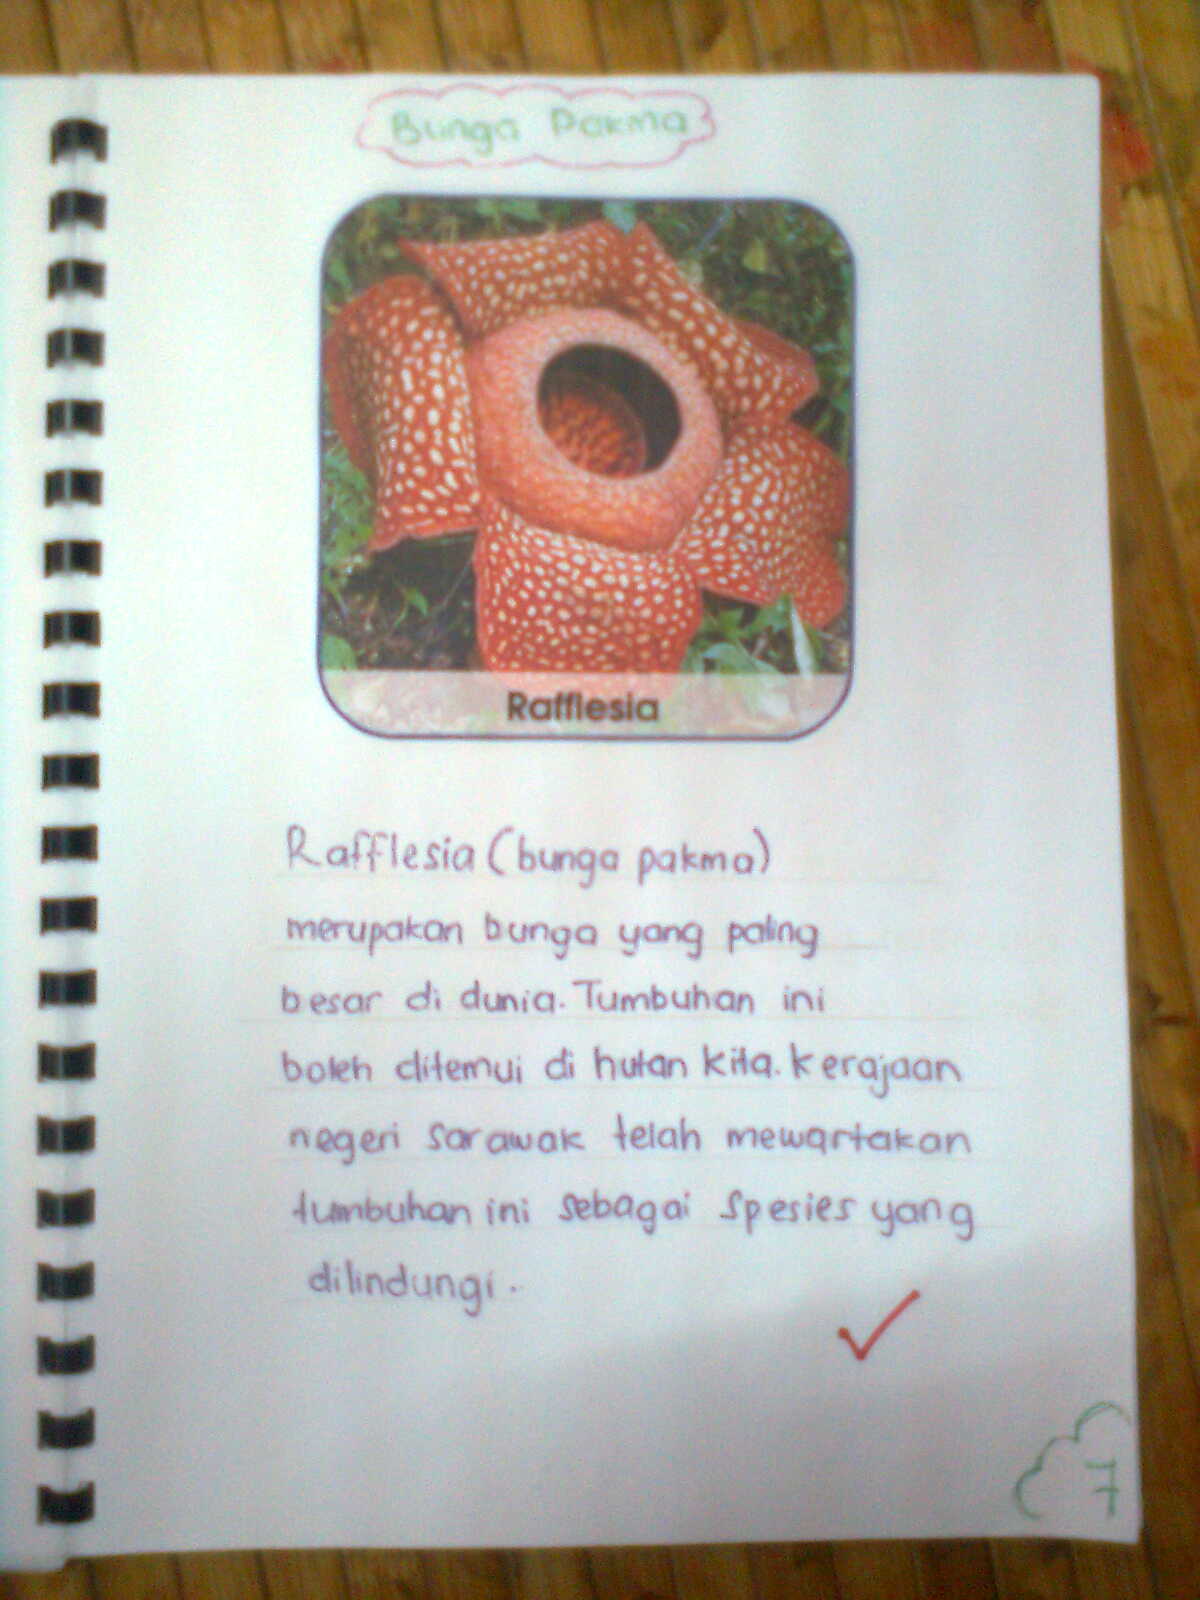 Bunga Pakma
Rafflesia
Rafflesia (bunga pakma)
merupakan bunga yang paling
besar di dunia. Tumbuhan ini
boleh ditemui di hutan kita. kerajaan
negeri sarawak telah mewartakan
tumbuhan ini sebagai spesies yang
dilindungi.
7